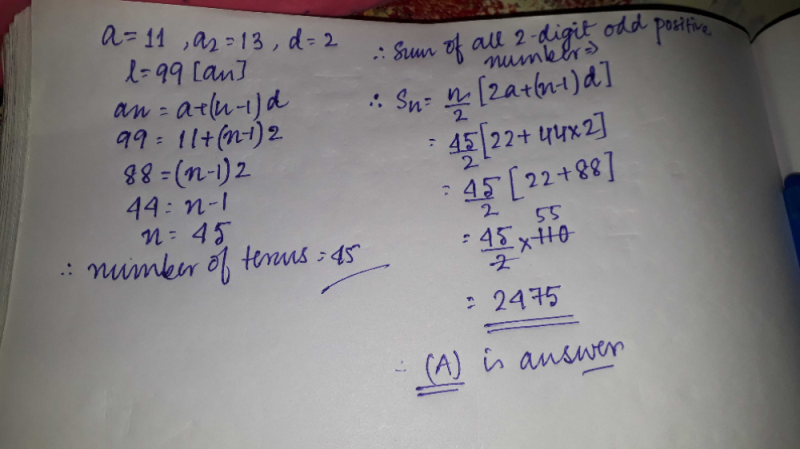 a=11 , a₂=13 , d=2
l=99 [an]
an = a+(n-1)d
99 = 11+(n-1)2
88=(n-1)2
44= n-1
n= 45
∴ number of terms = 45
∴ Sum of all 2-digit odd positive
number⇒
∴ Sn= n/2 [2a+(n-1)d]
= 45/2 [22+44×2]
= 45/2 [22+88]
55
= 45/2 × 110
= 2475
∴ (A) is answer